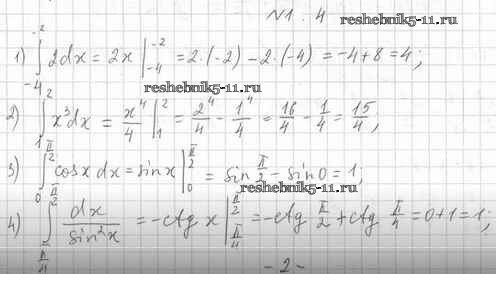 N1.4 reshebnik5-11.ru
1) ∫_{-4}^{-2} 2dx = 2x |_{-4}^{-2} = 2·(-2) - 2·(-4) = -4+8 = 4;
reshebnik5-11.ru
2) ∫_{1}^{2} x³dx = x⁴/4 |_{1}^{2} = 2⁴/4 - 1⁴/4 = 16/4 - 1/4 = 15/4,
3) ∫_{0}^{π/2} cosx dx = sinx |_{0}^{π/2} = sin π/2 - sin0 = 1;
reshebnik5-11.ru
4) ∫_{π/4}^{π/2} dx/sin²x = -ctg x |_{π/4}^{π/2} = -ctg π/2 + ctg π/4 = 0+1 = 1;
- 2 -